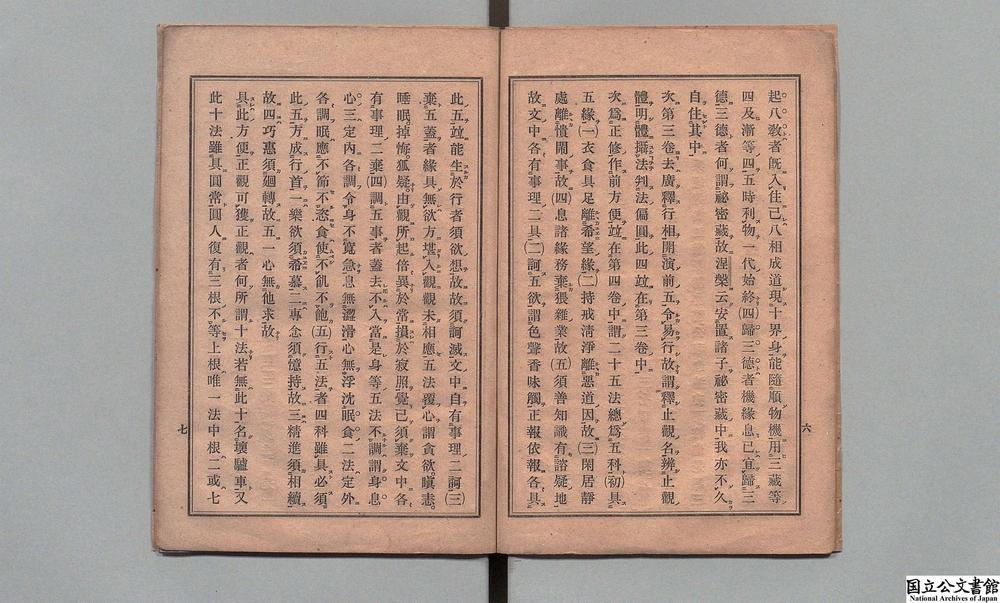 起八敎者旣入住己八相成道現十界身能隨順物機用三藏等
四及漸等四五時利物一代始終(四)歸三德者機緣息已宜歸三
德三德者何謂祕密藏故涅槃云安置諸子祕密藏中我亦不久
自住其中
次第三卷去廣釋行相開演前五令易行故謂釋止觀名辨止觀
體明體攝法判法偏圓此四竝在第三卷中
次爲正修作前方便竝在第四卷中謂二十五法總爲五科(初)具
五緣(一)衣食具足離希望緣(二)持戒淸淨離惡道因故(三)閑居靜
處離憒鬧事故(四)息諸緣務棄猥雜業故(五)須善知識有諮疑地
故文中各有事理二具(二)訶五欲謂色聲香味觸正報依報各具
六
此五竝能生於行者須欲想故故須訶滅文中自有事理二訶(三)
棄五蓋者緣具無欲方堪入觀觀未相應五法覆心謂貪欲瞋恚
睡眠掉悔狐疑由觀所起倍異於常損於寂照覺已須棄文中各
有事理二棄(四)調五事者蓋去不入當是身等五法不調謂身息
心三定內各調令身不寬急息無澀滑心無浮沈眠食二法定外
各調眠應不節不恣食使不飢不飽(五)行五法者四科雖具必須
此五方成行首一樂欲須希慕二專念須憶持故三精進須相續
故四巧惠須廻轉故五一心無他求故
具此方便正觀可獲正觀者何所謂十法若無此十名壞驢車又
此十法雖具圓常圓人復有三根不等上根唯一法中根二或七
七
国立公文書館
National Archives of Japan